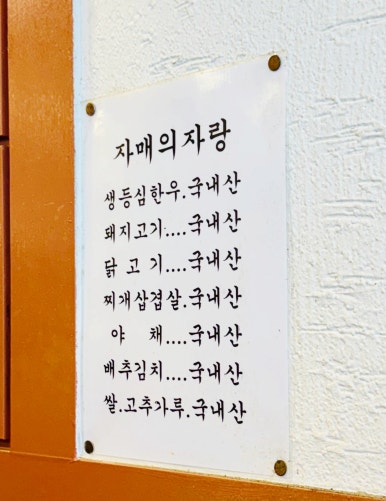 자매의자랑
생등심한우.국내산
돼지고기....국내산
닭 고 기....국내산
찌개삽겹살.국내산
야 채....국내산
배추김치....국내산
쌀.고추가루.국내산